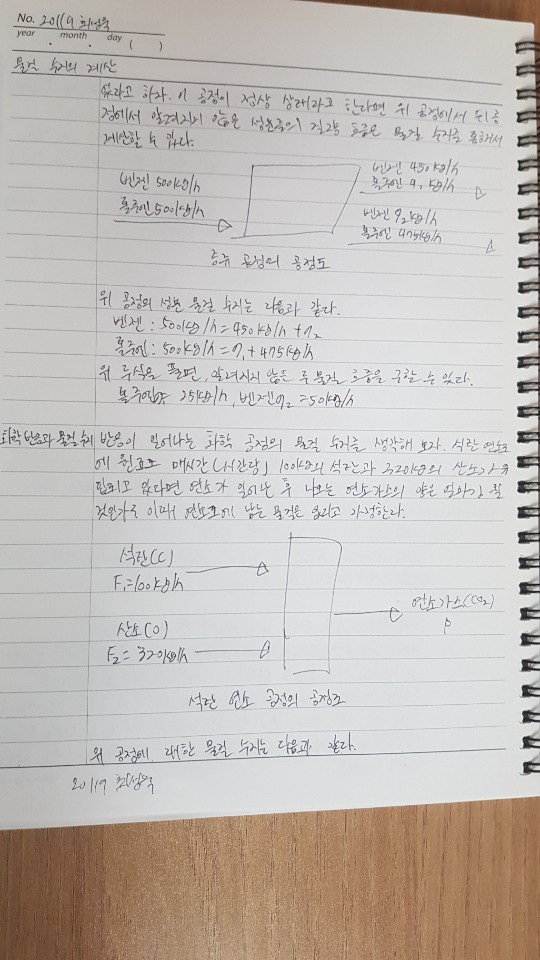 No. 20119 최성욱
year month day ( )
물질 수지의 계산
있다고 하자. 이 공정이 정상 상태라고 한다면 위 공정에서 위 증
정에서 알려지지 않은 성분들의 질량 흐름은 물질 수지를 통해서
계산할 수 있다.
벤젠 500kg/h
톨루엔 500kg/h
벤젠 450kg/h
톨루엔 q1 kg/h
벤젠 q2kg/h
톨루엔 475kg/h
증류 공정의 공정도
위 공정의 성분 물질 수지는 다음과 같다.
벤젠 : 500kg/h = 450kg/h + q2
톨루엔 : 500kg/h = q1 + 475kg/h
위 두식을 풀면, 알려지지 않은 두 물질 흐름을 구할 수 있다.
톨루엔 25kg/h, 벤젠 q2 = 50kg/h
화학 반응과 물질 수지 반응이 일어나는 화학 공정의 물질 수지를 생각해 보자. 석탄 연소로
에 원료로 매시간(1시간당) 100kg의 석탄과 320kg의 산소가
되고 있다면 연소가 일어난 후 나오는 연소가스의 양은 얼마가 될
것인가? 이때 연소로에 남는 물질은 없다고 가정한다.
석탄(C)
F1=100kg/h
산소(O)
F2= 320kg/h
연소가스(CO2)
P
석탄 연소 공정의 공정도
위 공정에 대한 물질 수지는 다음과 같다.
20119 최성욱